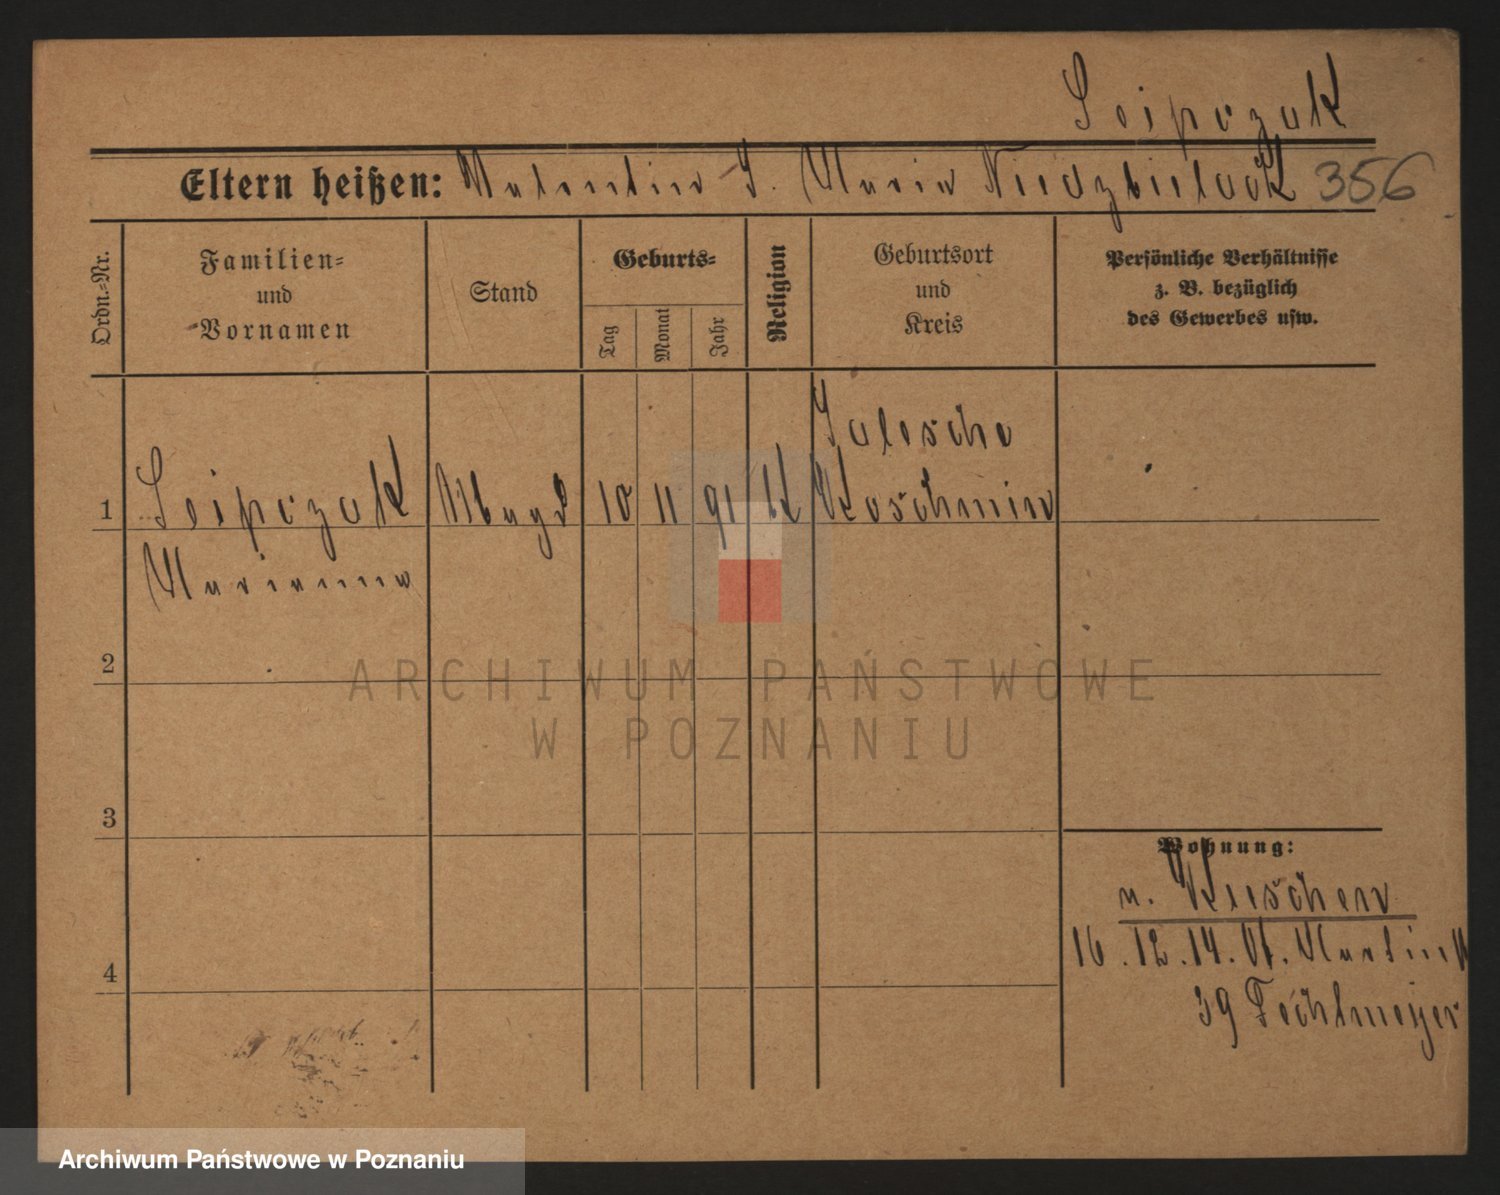 Seipczak
Eltern heißen: Valentin S. Maria Niedzbielack 356
Ordn.-Nr.
Familien-
und
Vornamen
Stand
Geburts-
Tag
Monat
Jahr
Religion
Geburtsort
und
Kreis
Persönliche Verhältnisse
z. B. bezüglich
des Gewerbes usw.
1
Seipczak
Marianna
Magd
10
11
91
K
Koschmin
2
3
4
Wohnung:
16.12.14.
39
ARCHIWUM PAŃSTWOWE
W POZNANIU
Archiwum Państwowe w Poznaniu